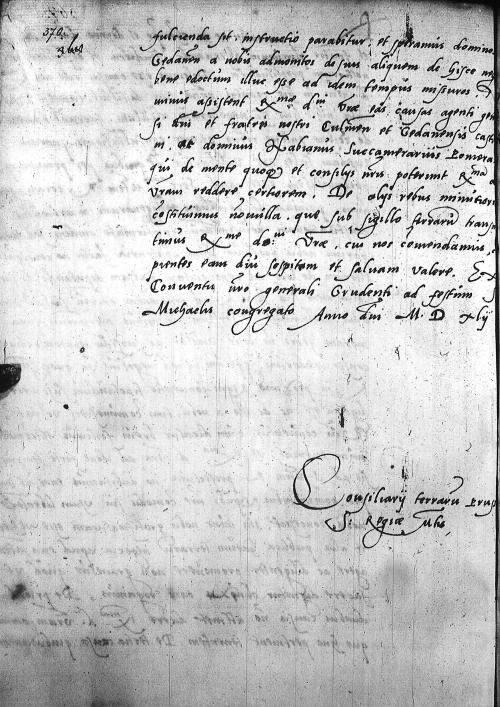 370.
fulcienda sit. instructio parabitur, et speramus domino
Gedanen a nobis admonitos de suis aliquem de hisce
bene edoctum illuc esse ad idem tempus missuros
unius assistent Rmae d. Vrae eas causas agenti
si dni et fratres nostri Culmen et Gedanensis cast
m. et dominus Fabianus, Succamerarius Pomera
qui de mente quoq et consilijs nris poterunt Rma
Vram reddere certiorem. De alijs rebus
costituimus nonulla. que sub sigillo terraru transm
timus Rme do: Vrae, cui nos comendamus,
pientes eam diu sospitem et saluam valere. Ex
Conventu nro generali Grudenti ad festum S
Michaelis congregato Anno dni M. D xlij
Consiliarij terraru Prus
S. Regiae Mtis